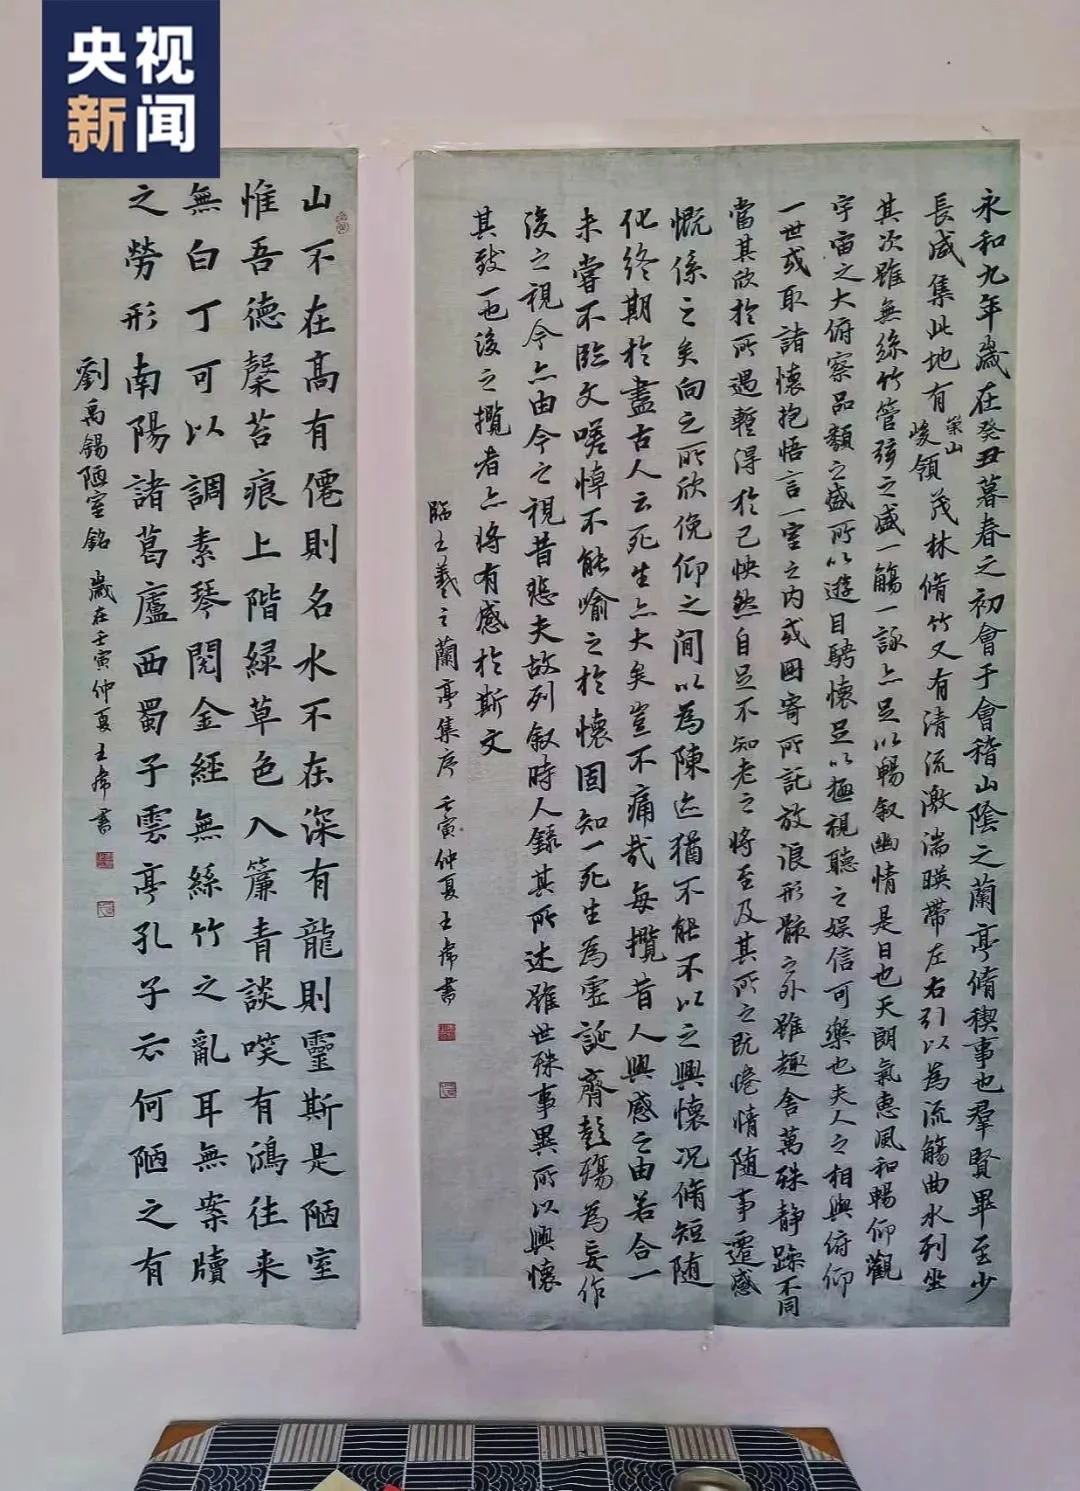 央视
新闻
永和九年歲在癸丑暮春之初會于會稽山陰之蘭亭脩稧事也羣賢畢至少
長咸集此地有崇山峻領茂林脩竹又有清流激湍暎帶左右引以為流觴曲水列坐
其次雖無絲竹管弦之盛一觴一詠亦足以暢叙幽情是日也天朗氣惠風和暢仰觀
宇宙之大俯察品類之盛所以遊目騁懷足以極視聽之娛信可樂也夫人之相與俯仰
一世或取諸懷抱悟言一室之內或因寄所託放浪形骸之外雖趣舍萬殊静躁不同
當其欣於所遇暫得於己怏然自足不知老之將至及其所之既惓情隨事遷感
慨係之矣向之所欣俛仰之間以為陳迹猶不能不以之興懷況脩短隨
化終期於盡古人云死生亦大矣豈不痛哉每攬昔人興感之由若合一
未嘗不臨文嗟悼不能喻之於懷固知一死生為虛誕齊彭殤為妄作
後之視今亦由今之視昔悲夫故列叙時人錄其所述雖世殊事異所以興懷
其致一也後之攬者亦將有感於斯文
臨王羲之蘭亭集序 壬寅仲夏王書
山不在高有僊則名水不在深有龍則靈斯是陋室
惟吾德馨苔痕上階緑草色入簾青談笑有鴻往来
無白丁可以調素琴閱金經無絲竹之亂耳無案牘
之勞形南陽諸葛廬西蜀子雲亭孔子云何陋之有
劉禹錫陋室銘 歲在壬寅仲夏王書